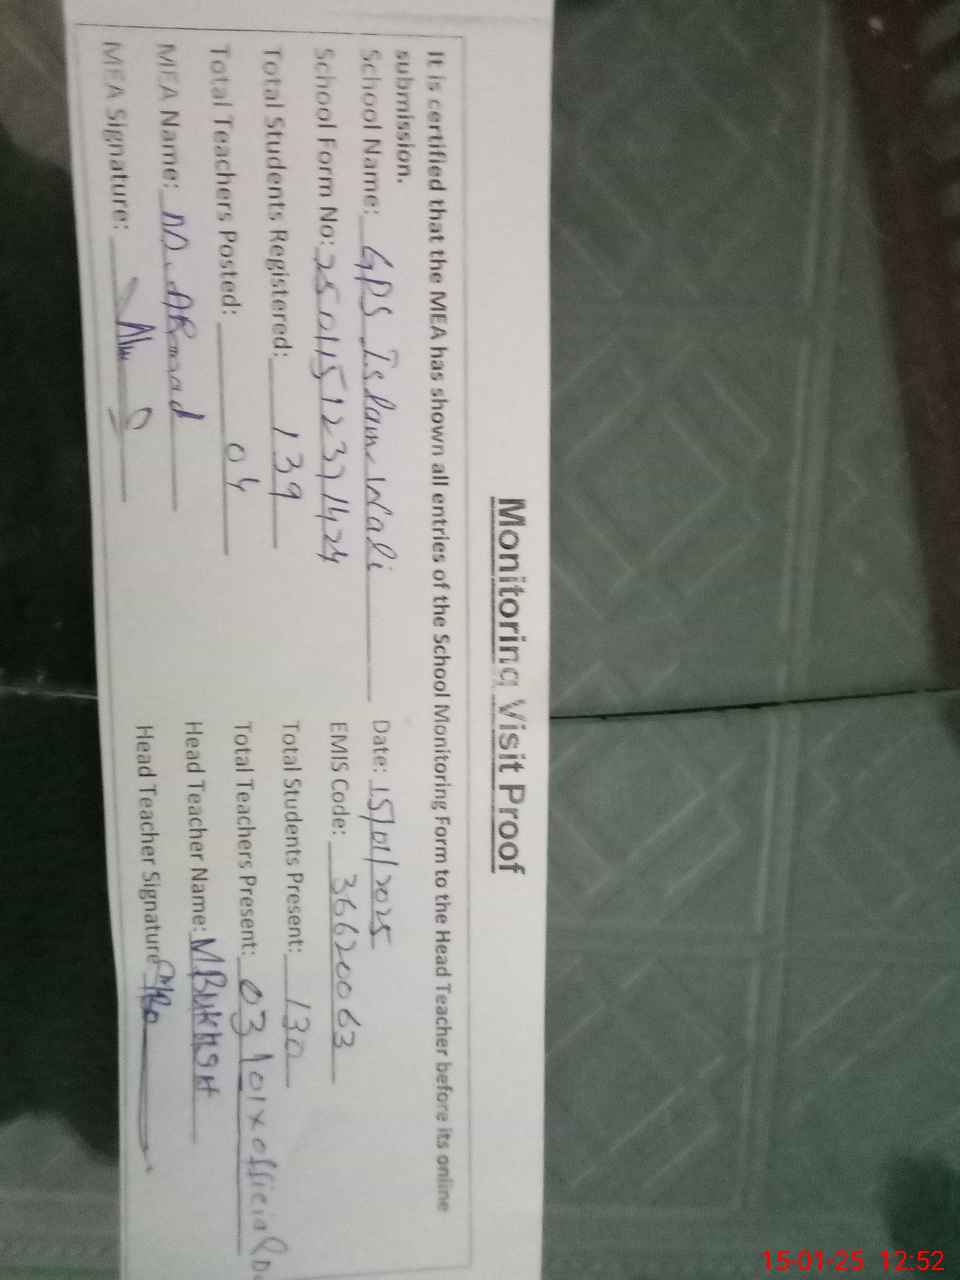 Monitoring Visit Proof
It is certified that the MEA has shown all entries of the School Monitoring Form to the Head Teacher before its online
submission.
School Name: GPS Islam Wali Date: 15/01/2025
School Form No: EMIS Code: 36620063
Total Students Registered: 139 Total Students Present: 130
Total Teachers Posted: 04 Total Teachers Present: 03 / 01 x official
MEA Name: M. Head Teacher Name: M.BUKHSH
MEA Signature: Head Teacher Signature
15-01-25 12:52